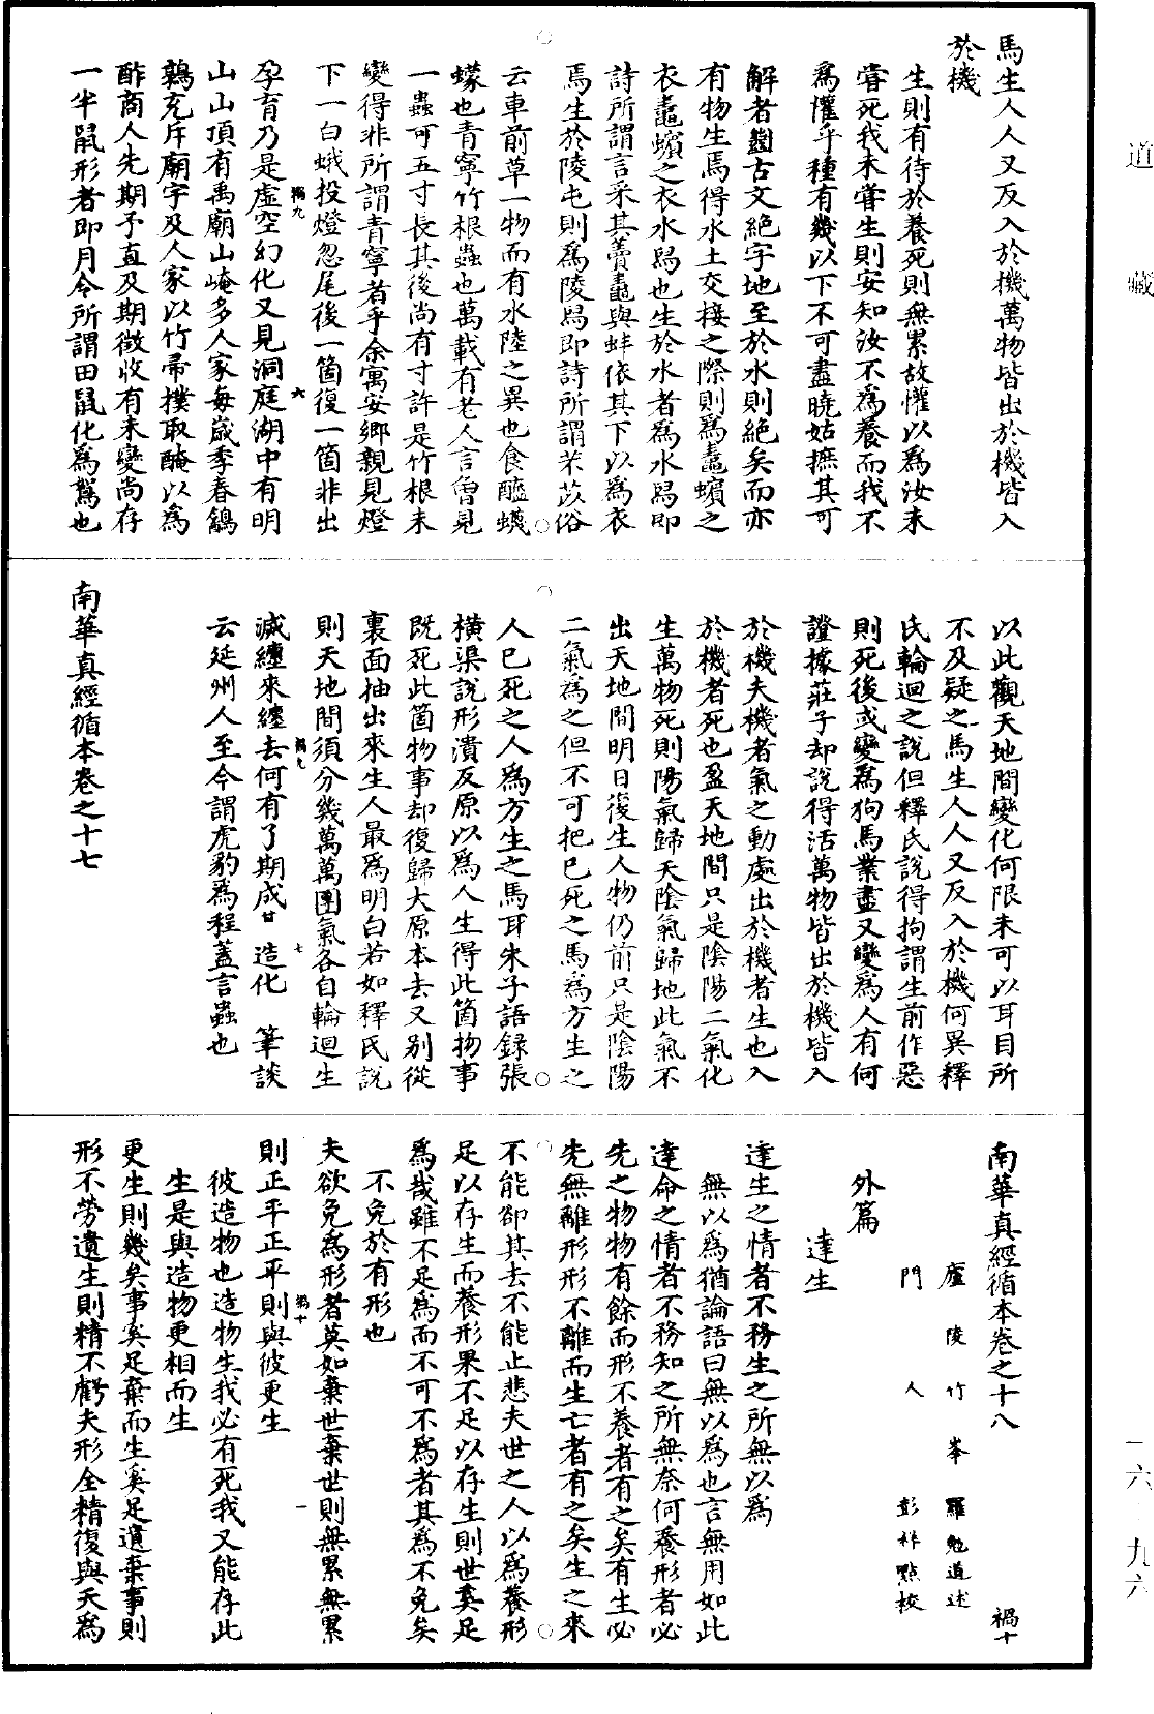 道藏
馬生人人又反入於機萬物皆出於機皆入
於機
生則有待於養死則無累故懽以為汝未
嘗死我未嘗生則安知汝不為養而我不
為懽乎種有幾以下不可盡曉姑摭其可
解者㡭古文絕字地至於水則絕矣而亦
有物生焉得水土交接之際則為鼃蠙之
衣鼃蠙之衣水舄也生於水者為水舄即
詩所謂言采其藚鼃與蚌依其下以為衣
焉生於陵屯則為陵舄即詩所謂芣苡俗
云車前草一物而有水陸之異也食醯蠛
蠓也青寧竹根蟲也萬載有老人言曾見
一蟲可五寸長其後尚有寸許是竹根未
變得非所謂青寧者乎余寓安鄉親見燈
下一白蛾投燈忽尾後一箇復一箇非出
孕育乃是虛空幻化又見洞庭湖中有明
禍九
六
山山頂有禹廟山崦多人家每歲季春鶬
鶉充斥廟宇及人家以竹帚撲取醃以為
酢商人先期予直及期徵收有未變尚存
一半鼠形者即月令所謂田鼠化為鴽也
以此觀天地間變化何限未可以耳目所
不及疑之馬生人人又反入於機何異釋
氏輪迴之說但釋氏說得拘謂生前作惡
則死後或變為狗馬業盡又變為人有何
證據莊子却說得活萬物皆出於機皆入
於機夫機者氣之動處出於機者生也入
於機者死也盈天地間只是陰陽二氣化
生萬物死則陽氣歸天陰氣歸地此氣不
出天地間明日復生人物仍前只是陰陽
二氣為之但不可把已死之馬為方生之
人已死之人為方生之馬耳朱子語錄張
橫渠說形潰反原以為人生得此箇物事
既死此箇物事却復歸大原本去又別從
裏面抽出來生人最為明白若如釋氏說
則天地間須分幾萬萬團氣各自輪迴生
滅纏來纏去何有了期成甘造化　筆談
禍九
七
云延州人至今謂虎豹為程蓋言蟲也
南華真經循本卷之十七
南華真經循本卷之十八　禍十
廬陵竹峯羅勉道述
門人彭祥點校
外篇
達生
達生之情者不務生之所無以為
無以為猶論語曰無以為也言無用如此
達命之情者不務知之所無奈何養形者必
先之物物有餘而形不養者有之矣有生必
先無離形形不離而生亡者有之矣生之來
不能卻其去不能止悲夫世之人以為養形
足以存生而養形果不足以存生則世奚足
為哉雖不足為而不可不為者其為不免矣
不免於有形也
夫欲免為形者莫如棄世棄世則無累無累
則正平正平則與彼更生
禍十
一
彼造物也造物生我必有死我又能存此
生是與造物更相而生
更生則幾矣事奚足棄而生奚足遺棄事則
形不勞遺生則精不虧夫形全精復與天為
一六　九六